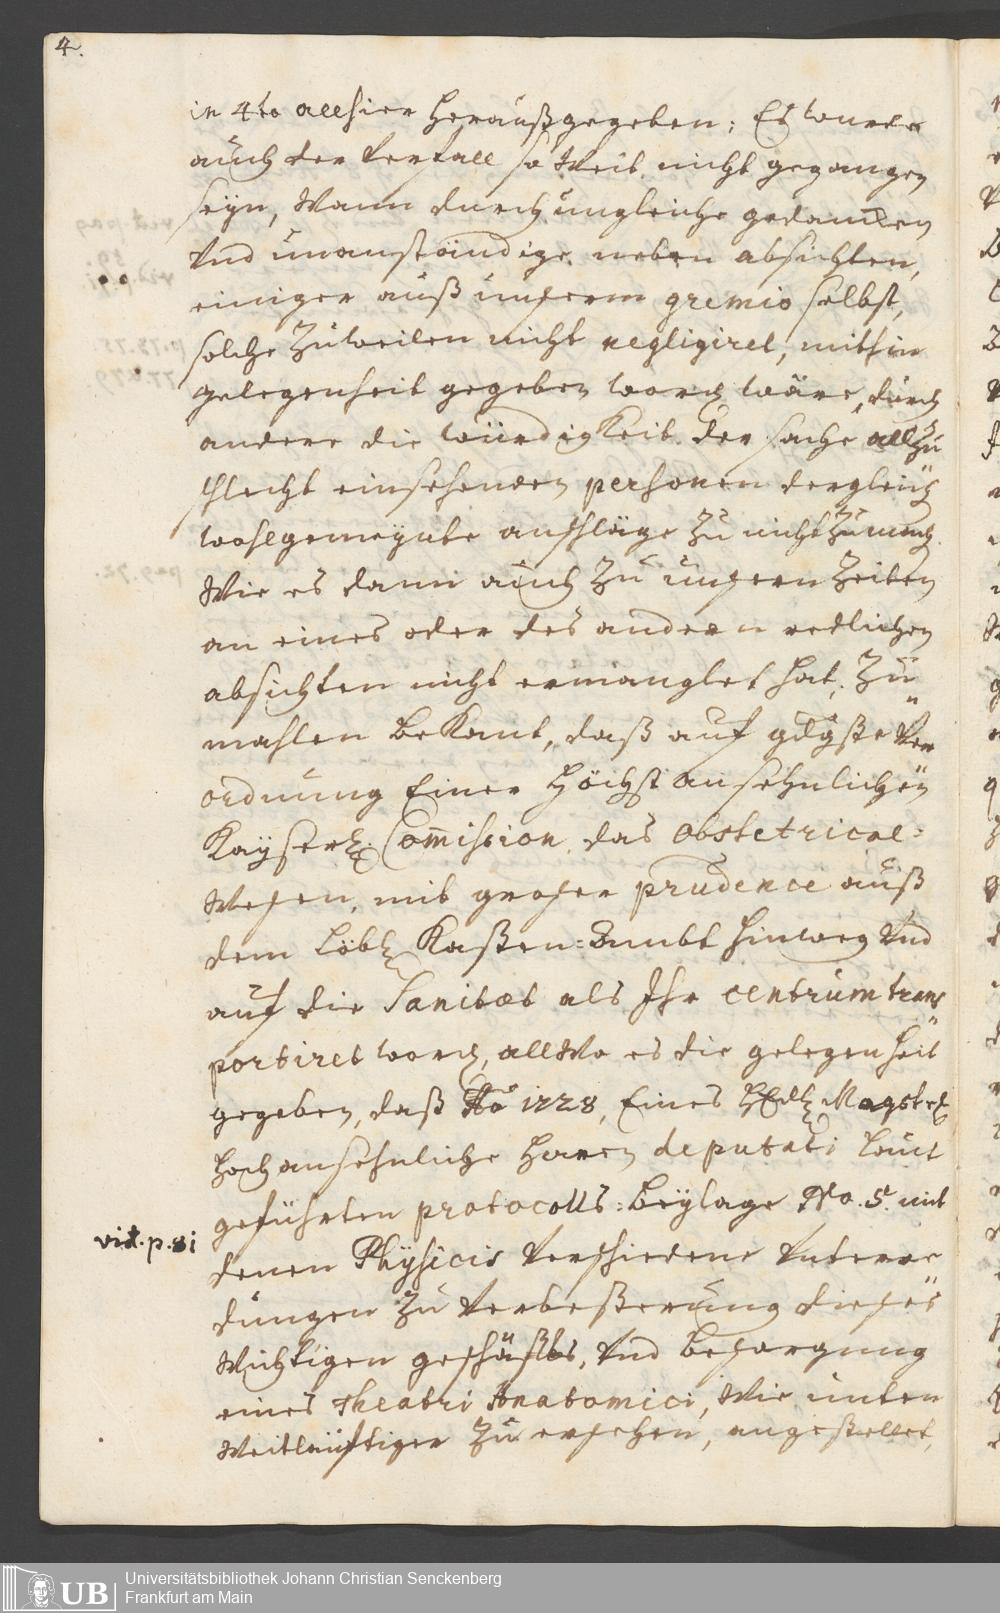 4.
in 4to allhier heraußgegeben; Es wurde
auch der Verfall so Weit nicht gegangen
seyn, Wann durch ungleiche gedancken
Vnd unanständige neben absichten,
einiger auß unserm gremio selbst,
solche Zuweilen nicht negligiret, mithin
gelegenheit gegeben word. wäre, durch
andere die würdigkeit der sache allzu
schlecht einsehenden personen dergleich.
wohlgemeynte anschläge zu nicht zu mach.
Wie es dann auch zu unsern Zeiten
an eines oder des andern redlichen
absichten nicht ermanglet hat, Zu
mahlen bekant, daß auf gdgste Ver
ordnung Einer Höchst ansehnlichen
Kayserl. Commission das obstetrical=
Wesen, mit groser prudence auß
dem Löbl. Kasten=Ambt hinweg Vnd
auf die Sanitæt als Ihr centrum trans
portiret word., allwo es die gelegenheit
gegeben, daß Ao 1728, Eines HEdl. Magstrt
hoch ansehnliche Herren deputati laut
geführten protocolls=beylage No. 5. mit
vid. p. 81
denen Physicis Verschiedene Vnterre
dungen zu Verbeßerung dieses
Wichtigen geschäffts, Vnd besorgung
eines Theatri Anatomici, Wie unten
Weitläuftiger Zu ersehen, angestellet,
UB
Universitätsbibliothek Johann Christian Senckenberg
Frankfurt am Main